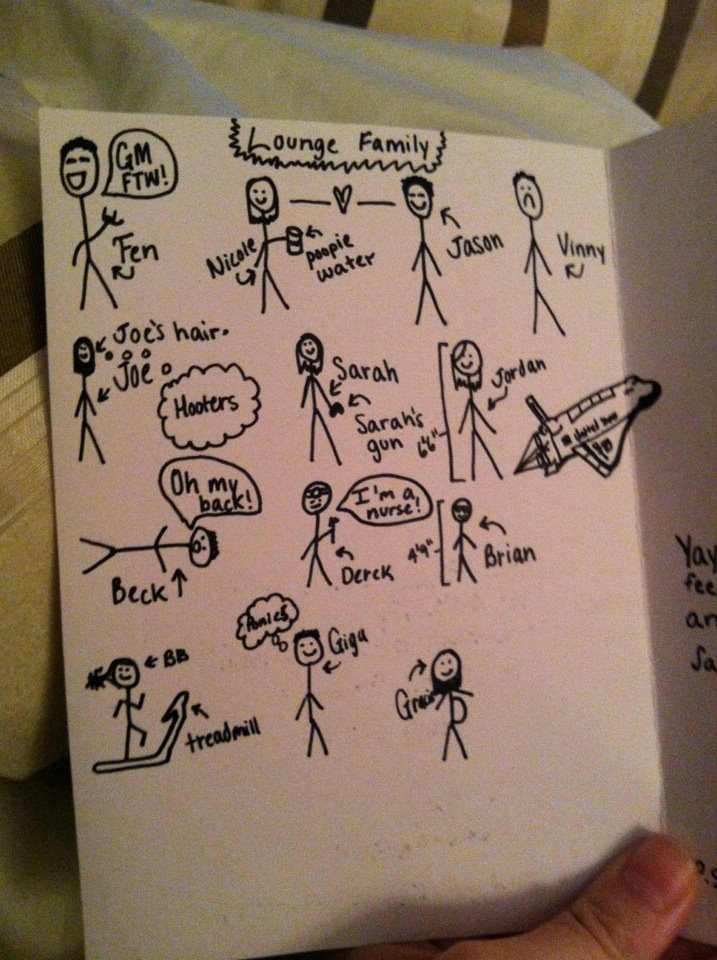 Lounge Family
GM
FTW!
Fen
Nicole
poopie
water
Jason
Vinny
Joe's hair.
Joe
Hooters
Sarah
Sarah's
gun
6'6"
Jordan
Oh my
back!
Beck
I'm a
nurse!
Derek
4'9"
Brian
BB
treadmill
Ponies
Giga
Yay
fee
an
Sa
P.S